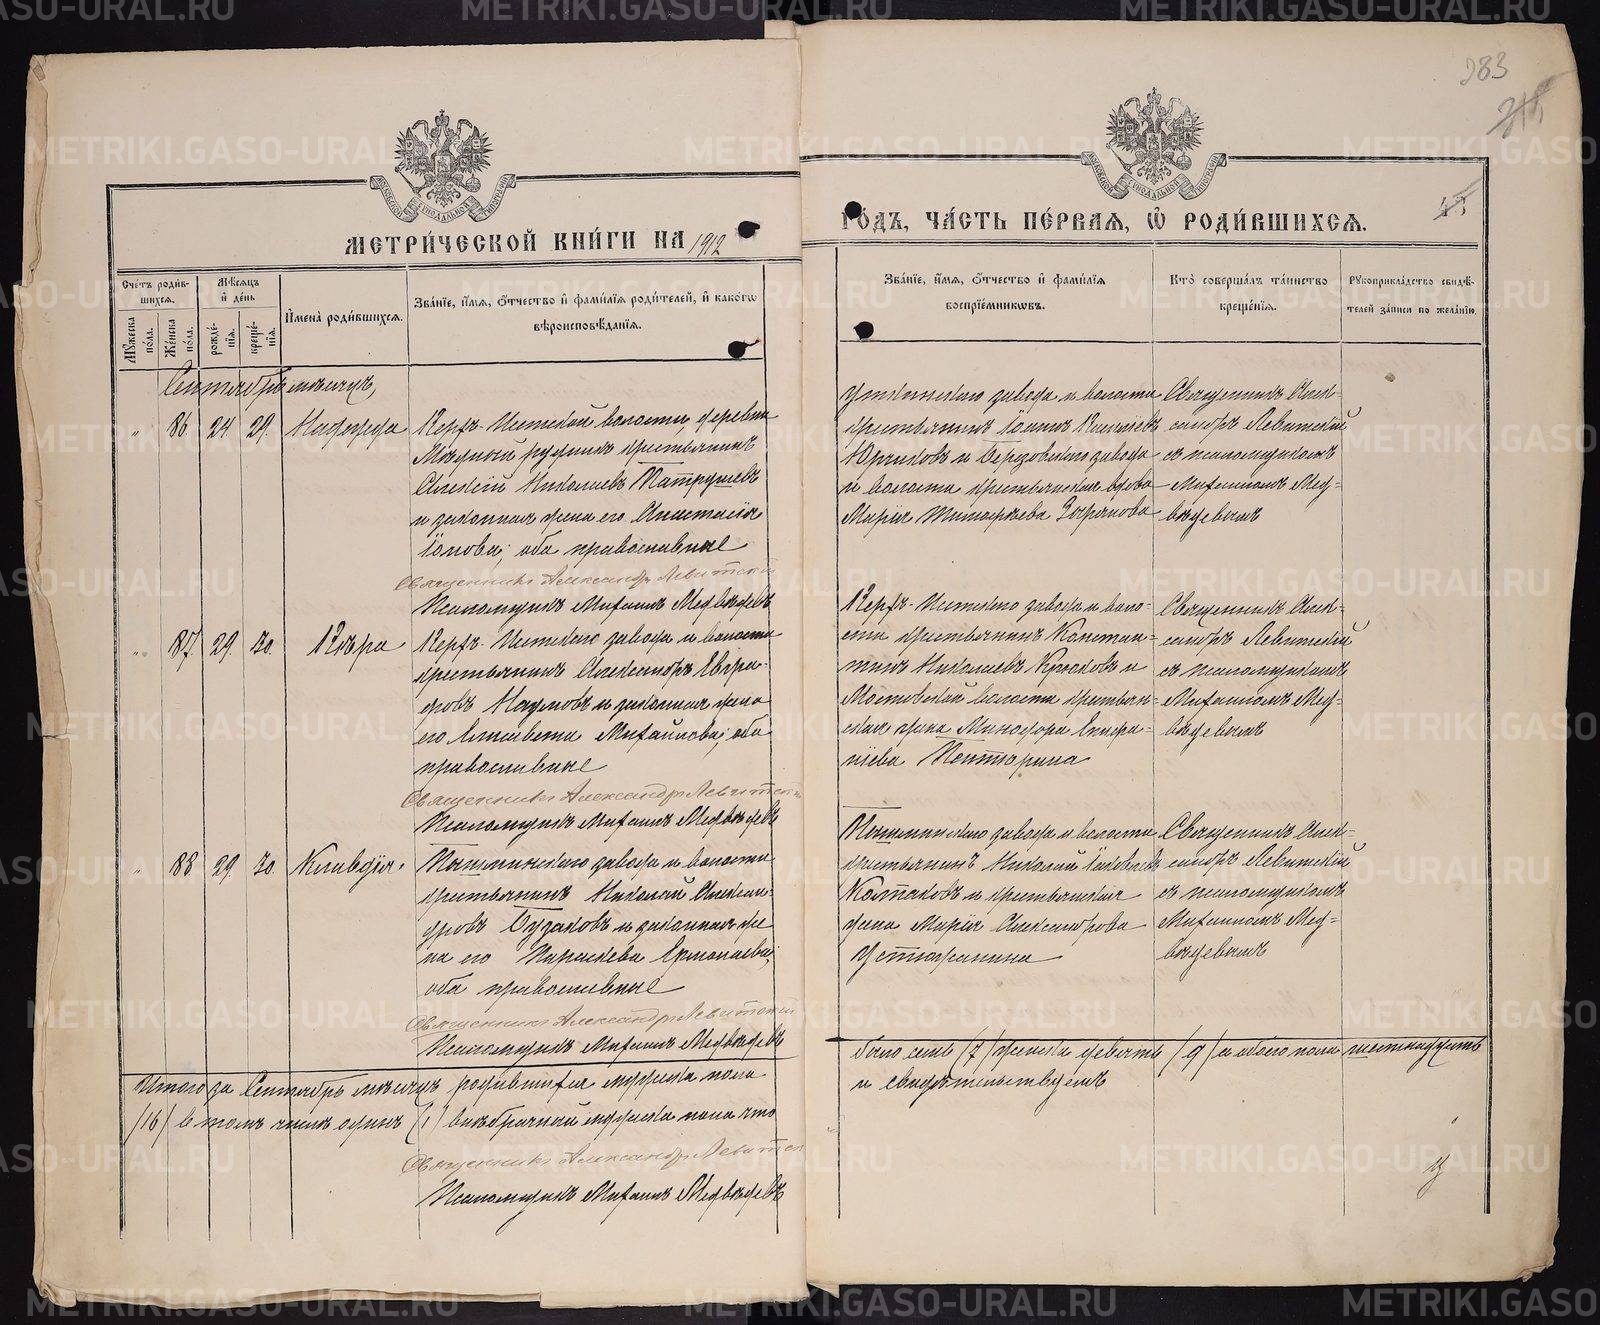 283
МЕТРИ́ЧЕСКОЙ КНИ́ГИ НА 1912
ГО́ДЪ, ЧА́СТЬ ПЕ́РВАЯ, Ѽ РОДИ́ВШИХСЯ.
Сче́тъ роди́вшихся.
Му́жеска по́ла.
Же́нска по́ла.
Мѣ́сяцъ и де́нь
рожде́нїя.
креще́нїя.
И҆мена̀ роди́вшихся.
Зва́нїе, и҆́мя, ѻ҆́тчество и҆ фами́лїя роди́телей, и҆ како́гѡ
вѣроисповѣ́данїя.
Зва́нїе, и҆́мя, ѻ҆́тчество и҆ фами́лїя
воспрїе́мникѡвъ.
Кто̀ соверша́лъ та́инство
креще́нїя.
Рꙋкоприкла́дство свидѣ́-
телей за́писи по жела́нїю.
Сентябрь мѣсяцъ,
" 86 24. 29. Надежда
Верхъ-Исетской волости, деревни
Мѣдный рудникъ крестьянинъ
Алексій Николаевъ Патрушевъ
и законная жена его Анастасія
Іонова; оба православные
Священникъ Александръ Левитскій
Псаломщикъ Михаилъ Медвѣдевъ
Уткинскаго завода и волости
крестьянинъ Іоаннъ
и Березовскаго завода
и волости крестьянская вдова
Марія Зырянова
Священникъ Алек-
сандръ Левитскій
съ псаломщикомъ
Михаиломъ Мед-
вѣдевымъ
" 87 29. 30. Вѣра
Верхъ-Исетскаго завода и волости
крестьянинъ Александръ Евгра-
фовъ Наумовъ и законная жена
его Елисавета Михайлова; оба
православные
Священникъ Александръ Левитскій
Псаломщикъ Михаилъ Медвѣдевъ
Верхъ-Исетскаго завода и воло-
сти крестьянинъ Констан-
тинъ Николаевъ и
Мостовской волости крестьян-
ская жена Минодора Епифа-
ніева
Священникъ Алек-
сандръ Левитскій
съ псаломщикомъ
Михаиломъ Мед-
вѣдевымъ
" 88 29. 30. Клавдія.
Пышминскаго завода и волости
крестьянинъ Николай Алексан-
дровъ Бузаковъ и законная же
на его Параскева Ермолаева;
оба православные
Священникъ Александръ Левитскій
Псаломщикъ Михаилъ Медвѣдевъ
Пышминскаго завода и волости
крестьянинъ Николай Іаковлевъ
Колпаковъ и крестьянская
жена Марія Александрова
Устюжанина
Священникъ Алек-
сандръ Левитскій
съ псаломщикомъ
Михаиломъ Мед-
вѣдевымъ
Итого за Сентябрь мѣсяцъ родившихся мужска пола
было семь (7) женска девять (9) и обоего пола шестнадцать
(16) въ томъ числѣ одинъ (1) внѣбрачный мужска пола что
и свидѣтельствуемъ
Священникъ Александръ Левитскій
Псаломщикъ Михаилъ Медвѣдевъ